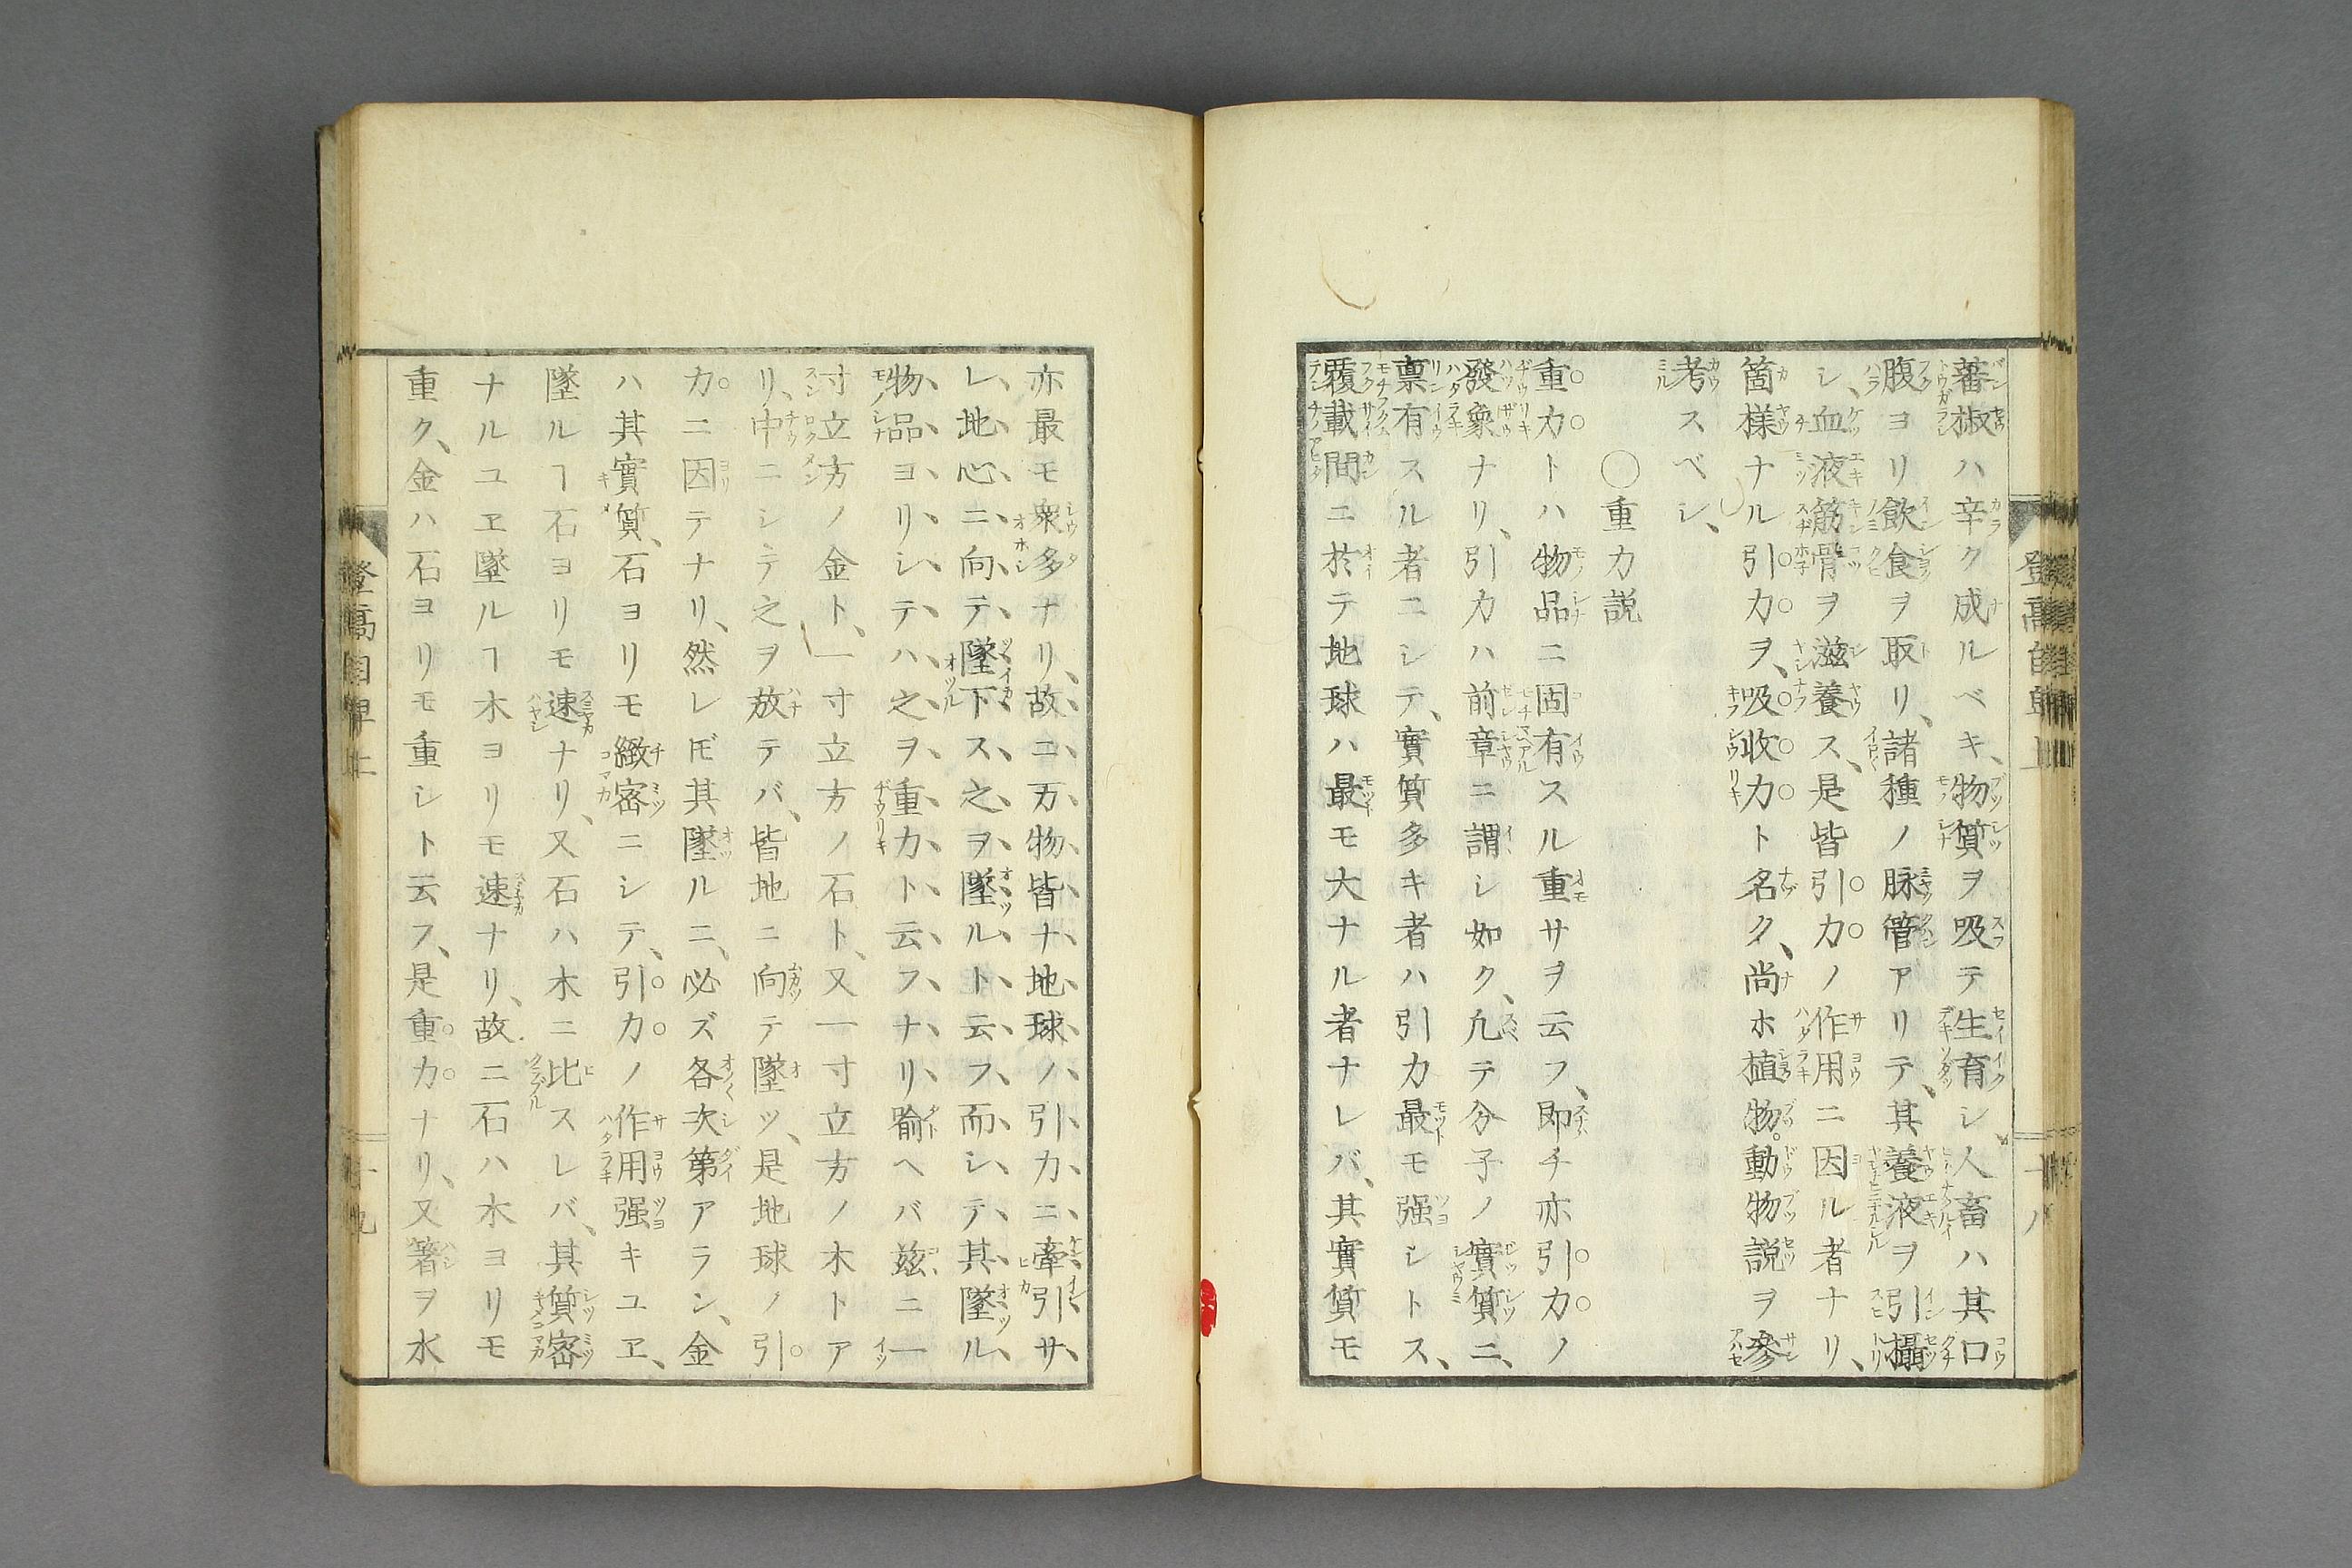 蕃椒ハ辛ク成ルベキ、物質ヲ吸テ生育シ人畜ハ其口
腹ヨリ飲食ヲ取リ、諸種ノ脉管アリテ、其養液ヲ引攝
シ、血液筋骨ヲ滋養ス、是皆引力ノ作用ニ因ル者ナリ、
箇樣ナル引力ヲ、吸收力ト名ク、尚ホ植物。動物説ヲ參
考スベシ、
〇重力説
重力トハ物品ニ固有スル重サヲ云フ、即チ亦引力ノ
發象ナリ、引力ハ前章ニ謂シ如ク、凡テ分子ノ實質ニ、
稟有スル者ニシテ、實質多キ者ハ引力最モ强シトス、
覆載間ニ於テ地球ハ最モ大ナル者ナレバ、其實質モ
亦最モ衆多ナリ、故ニ万物皆ナ地球ノ引力ニ牽引サ
レ地心ニ向テ墜下ス之ヲ墜ルト云フ而シテ其墜ル
物品ヨリシテハ之ヲ重力ト云フナリ喩ヘバ茲ニ一
寸立方ノ金ト、一寸立方ノ石ト、又一寸立方ノ木トア
リ、中ニシテ之ヲ放テバ、皆地ニ向テ墜ツ、是地球ノ引
力ニ因テナリ、然レ𪜈其墜ルニ、必ズ各次第アラン、金
ハ其實質、石ヨリモ緻密ニシテ、引力ノ作用强キユヱ、
墜ルヿ石ヨリモ速ナリ、又石ハ木ニ比スレバ、其質密
ナルユヱ墜ルヿ木ヨリモ速ナリ、故ニ石ハ木ヨリモ
重ク、金ハ石ヨリモ重シト云フ、是重力ナリ、又箸ヲ水
登高自卑上
十九